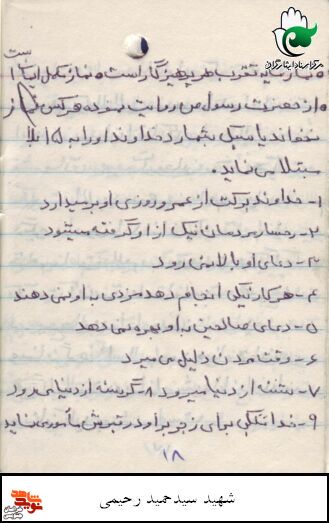 مرکز اسناد ایثارگران
ست
نماز مایه تقرب هر پرهیزگار است نماز مکمل
از حضرت رسول ص روایت نموده هر کس نماز
نخواند یا سبک بشمارد خداوند او را به ۱۵ بلا
مبتلا می نماید.
۱- خداوند برکت از عمر و روزی او بر میدارد
۲- رخسار مردمان نیک از او گرفته میشود
۳- دعای او بالا نمی رود
۴- هر کار نیکی انجام دهد مزدی به او نمی دهند
۵- دعای صالحین به او بهره نمی دهد
۶- وقت مردن ذلیل می میرد
۷- تشنه از دنیا میرود ۸- گرسنه از دنیا می رود
۹- خدا ملکی برای زجر بر او در قبرش مأمور می نماید
۱۸
شهید سیدحمید رحیمی
نوید شاهد